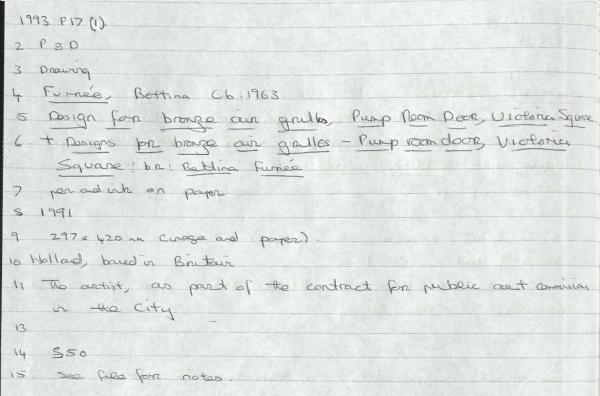 1993 P17 (1).
2 P & D
3 Drawing
4 Furnée, Bettina (b. 1963
5 Design for bronze air grilles, Pump Room Door, Victoria Square
6 + Designs for bronze air grilles - Pump room door, Victoria
Square; br: Bettina Furnée
7 pen and ink on paper
8 1991
9 297 x 420 mm (image and paper).
10 Holland, based in Britain
11 The artist, as part of the contract for public art commission
in the City
13
14 S50
15 see file for notes.